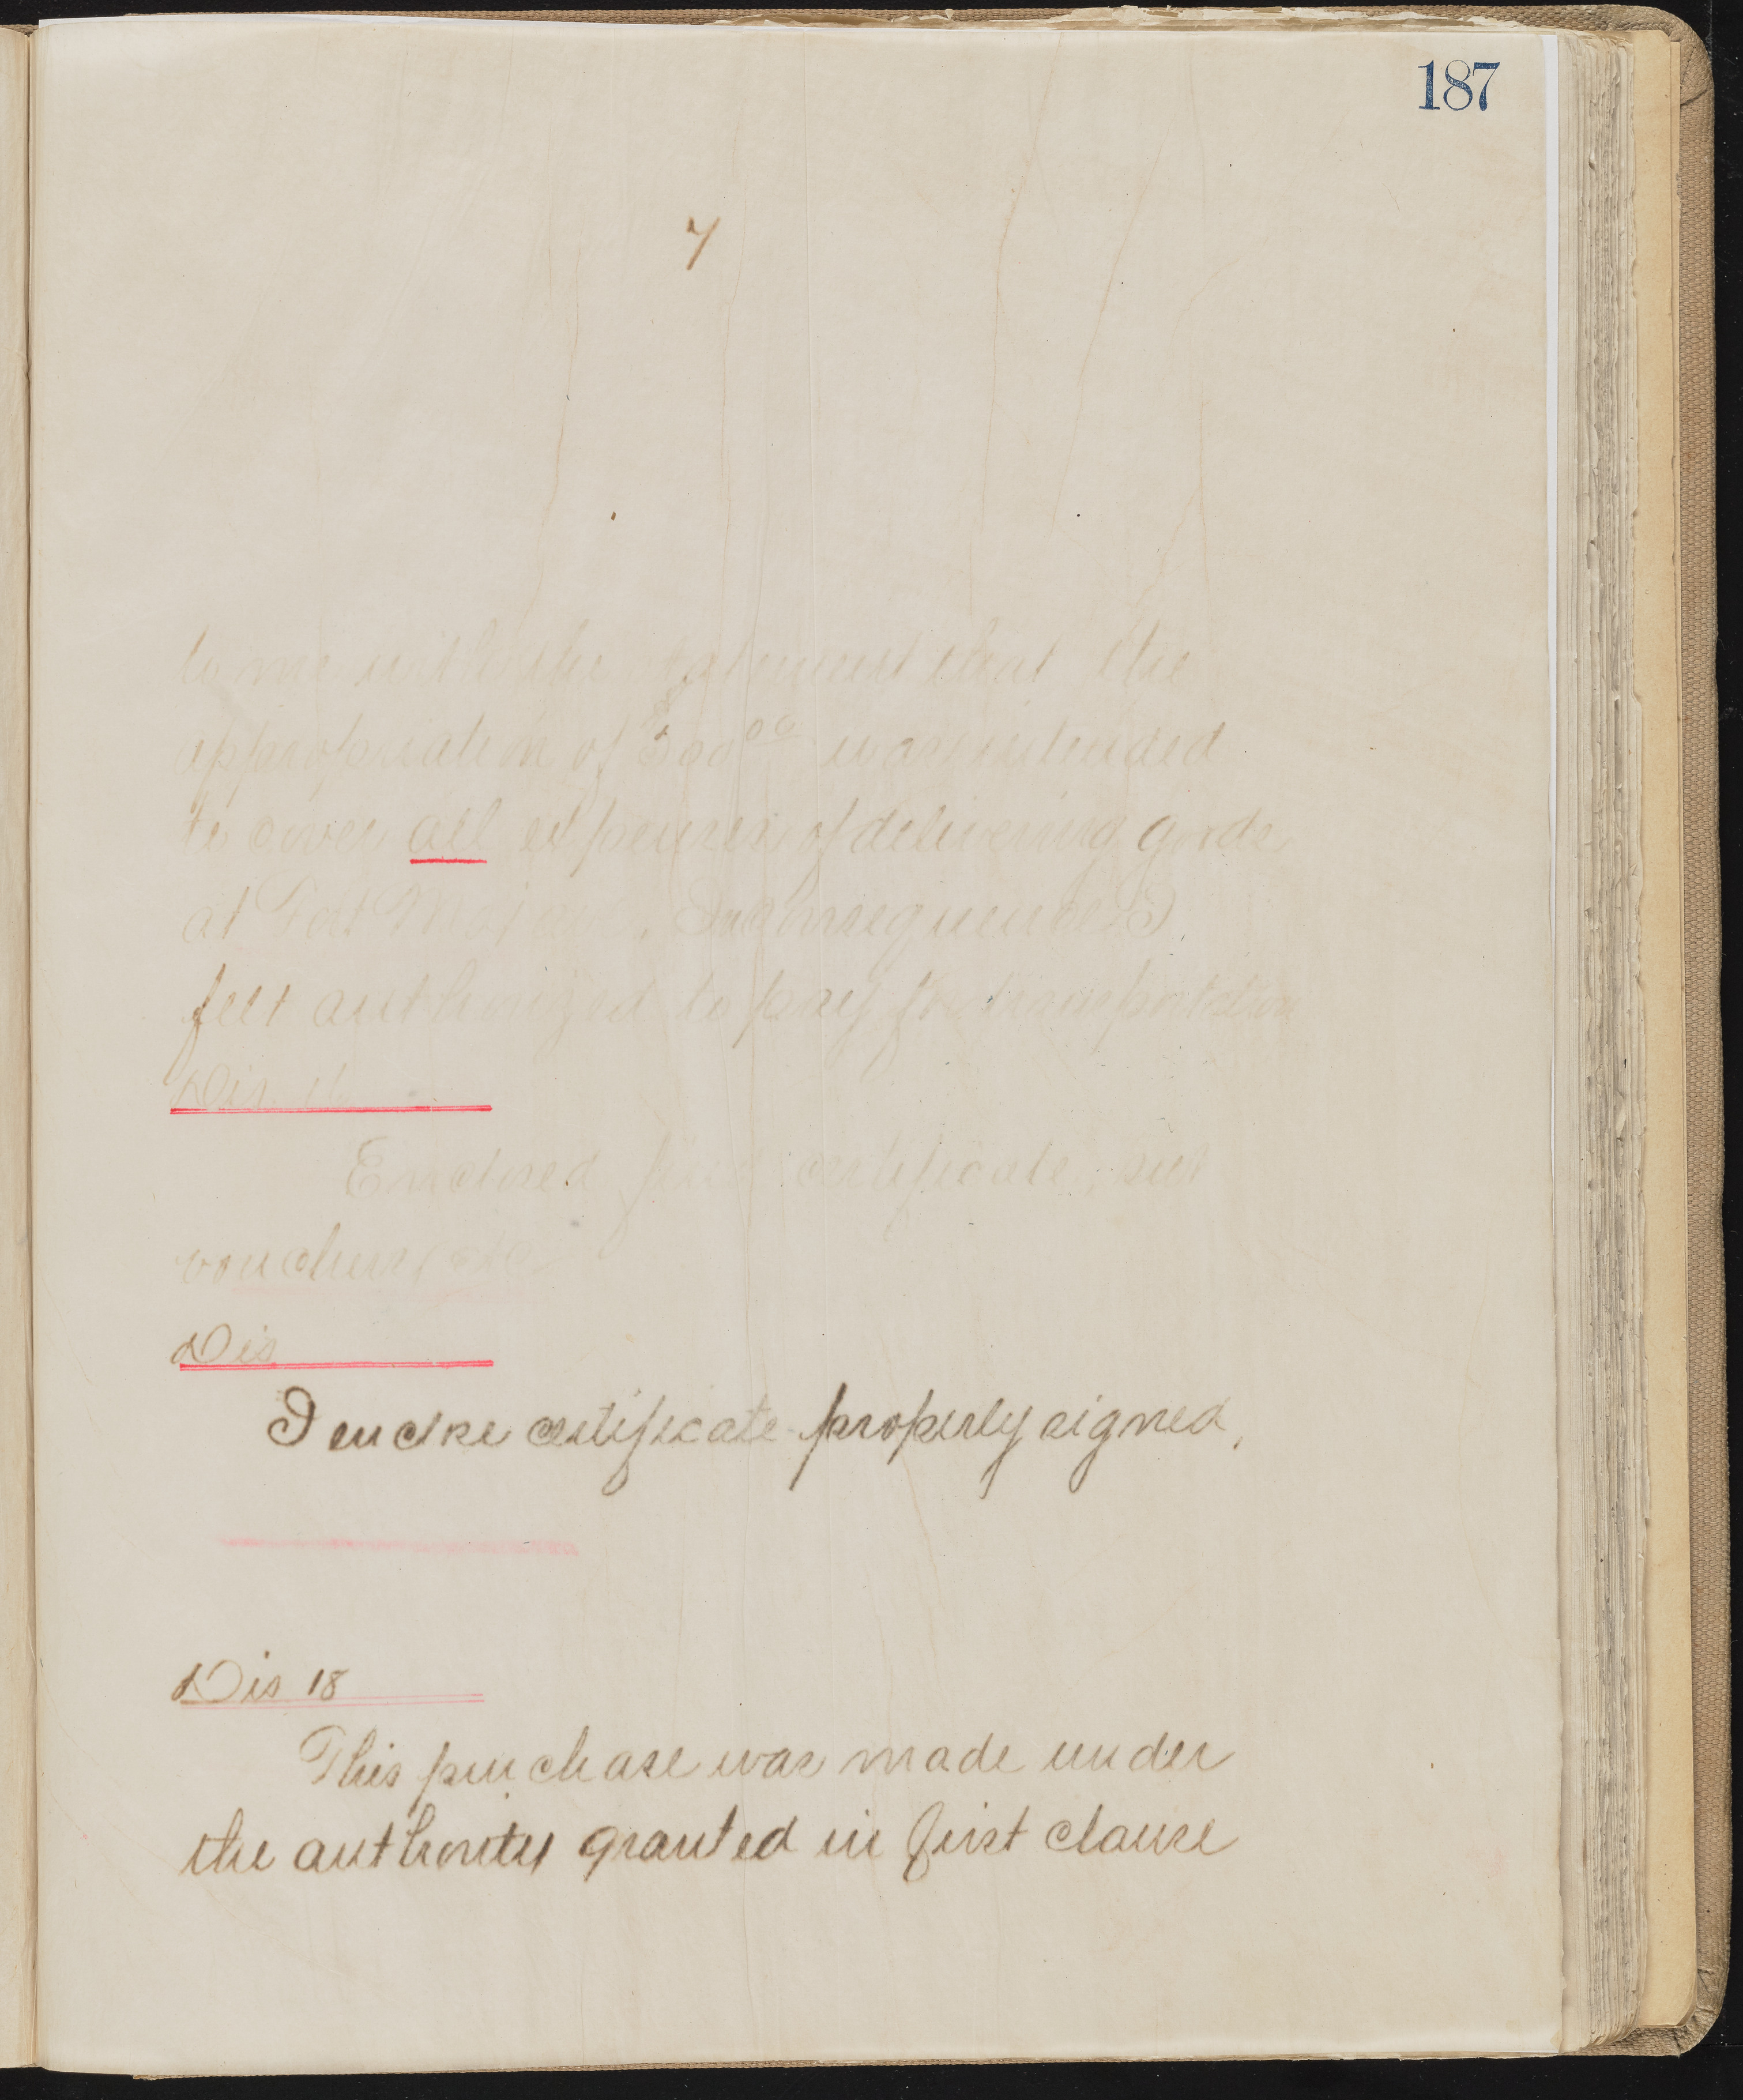 187
7
to me with the statement that the
appropriation of 500⁰⁰ was intended
to cover all expenses of delivering goods
at Fort Mojave, In consequence I
felt authorized to pay for transportation
Dis.
Enclosed find certificate, sub
vouchers
Dis
I enclose certificate properly signed,
Dis 18
This purchase was made under
the authority granted in first clause